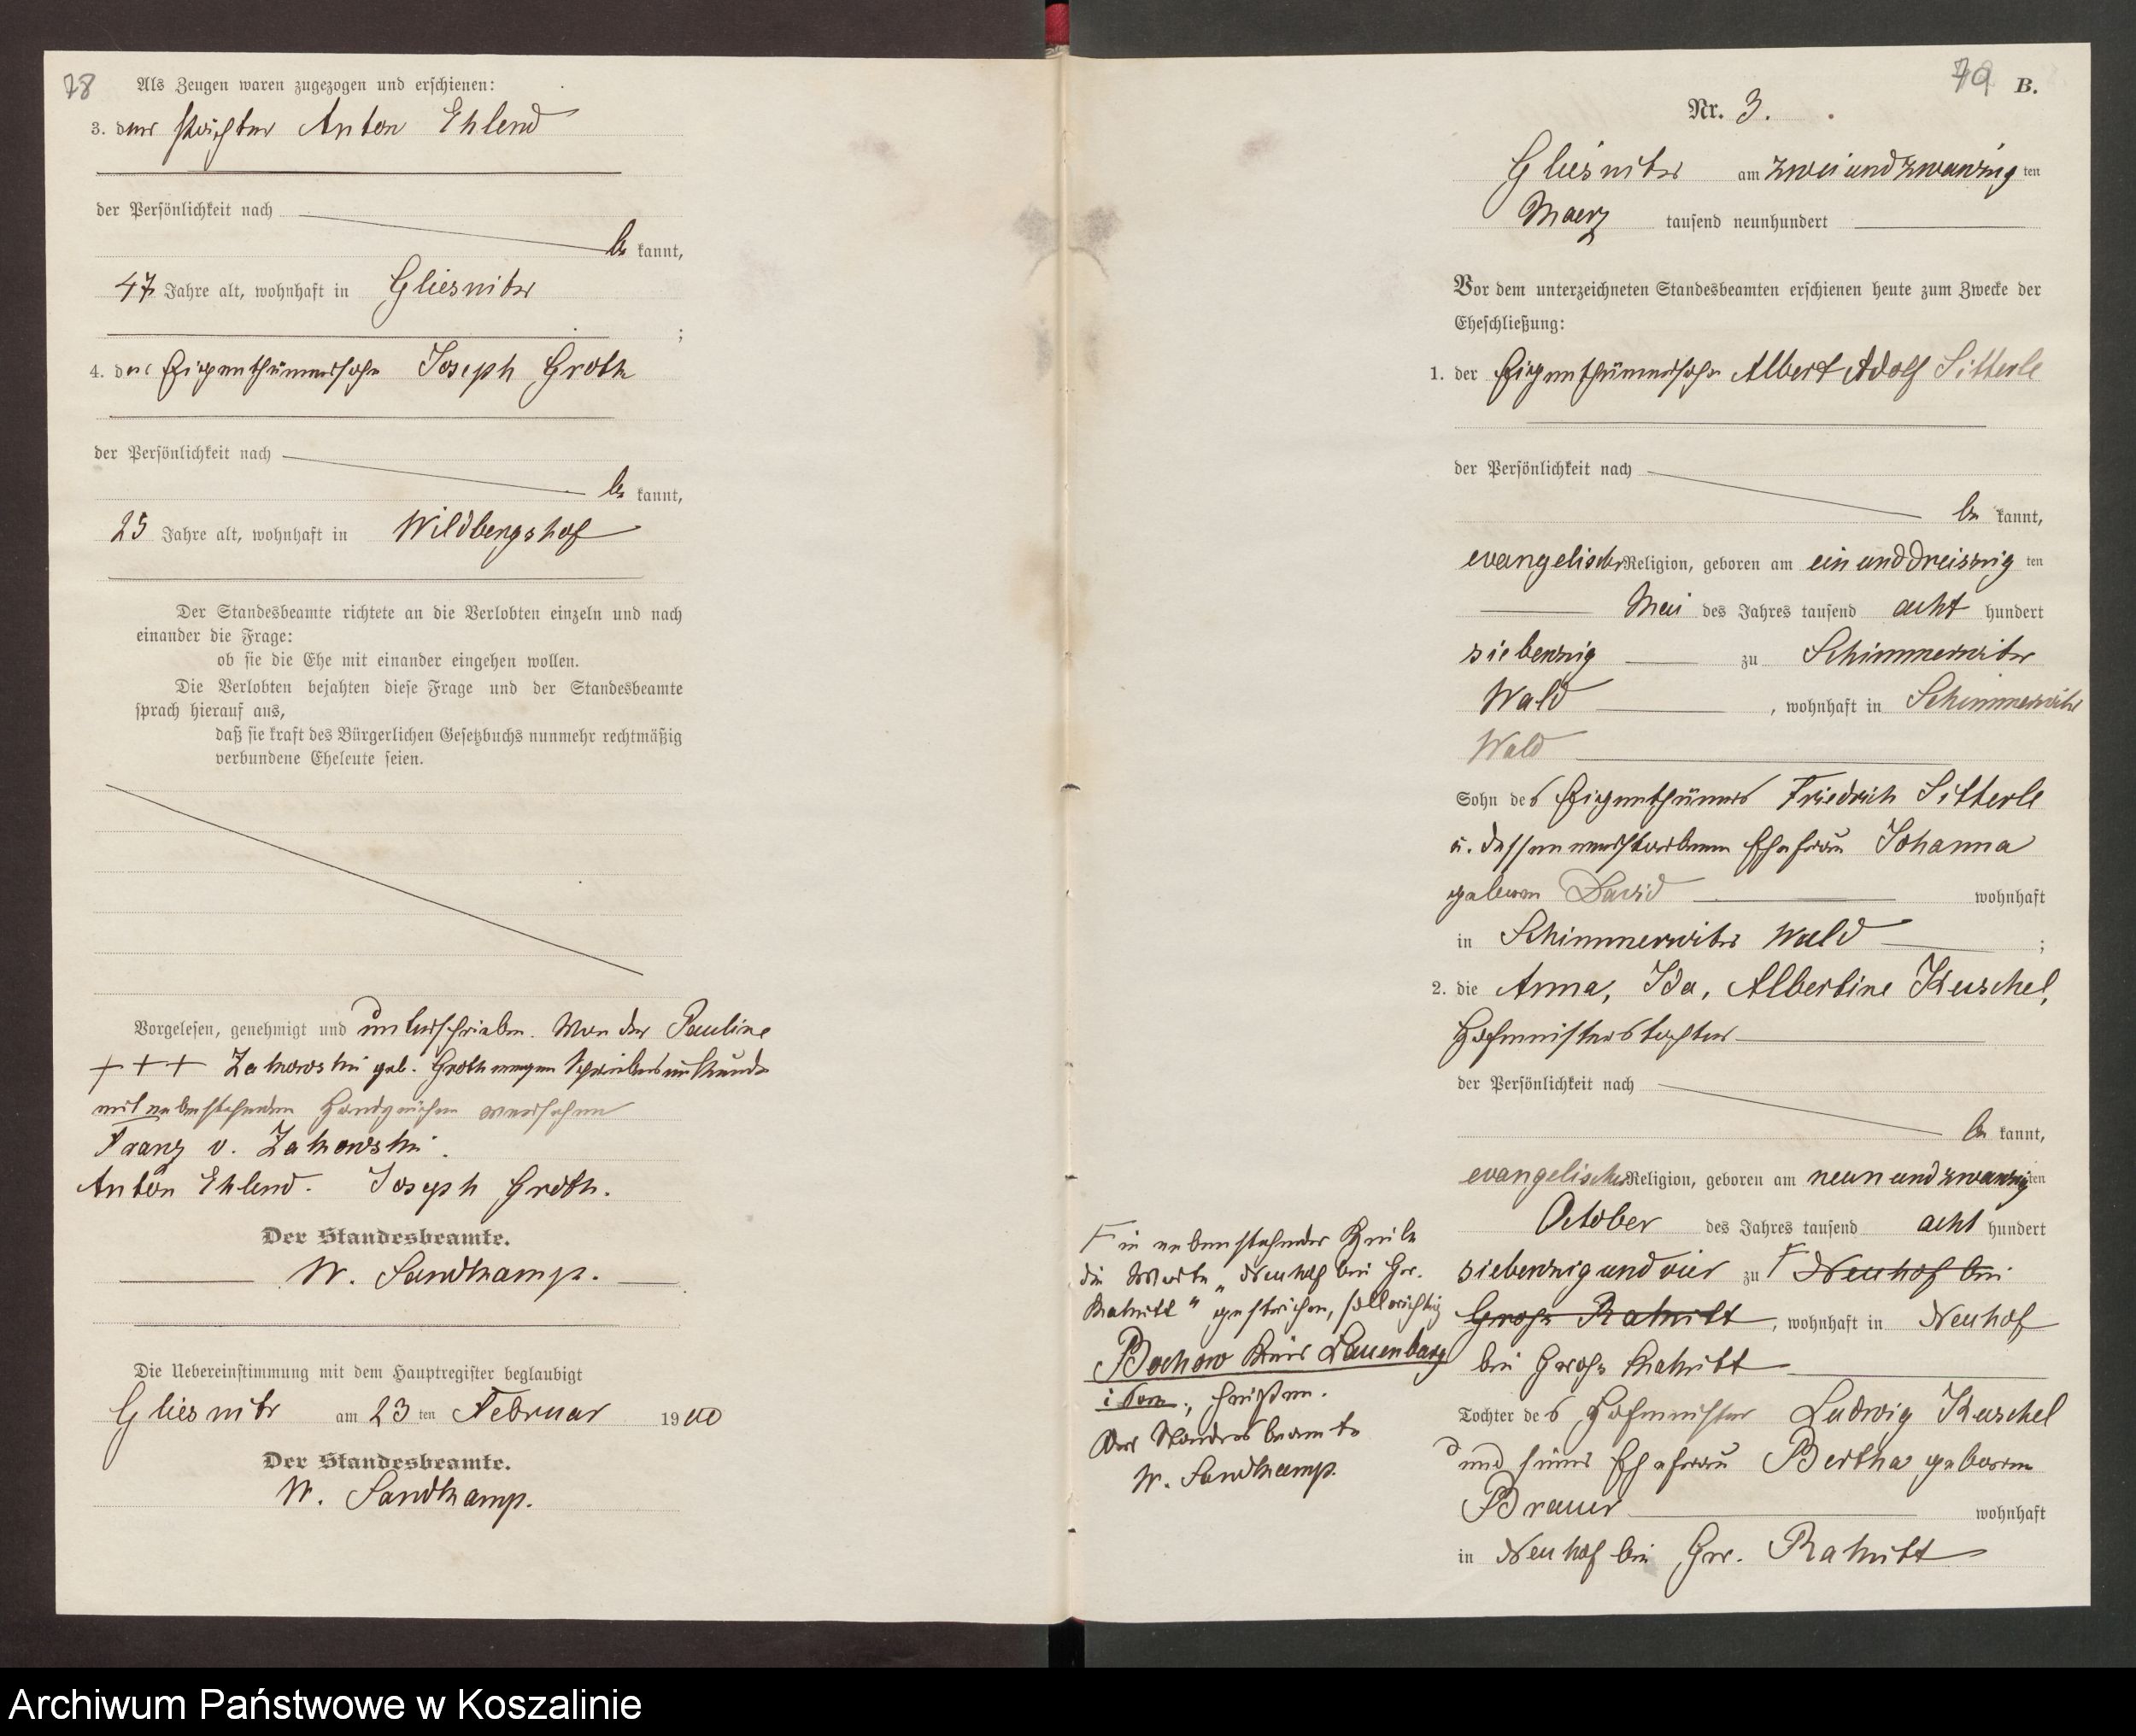 78
Als Zeugen waren zugezogen und erschienen:
3. der Pächter Anton Ehlend
der Persönlichkeit nach
be kannt,
47 Jahre alt, wohnhaft in Gliesnitz
;
4. der Eigenthümersohn Joseph Groth
der Persönlichkeit nach
be kannt,
25 Jahre alt, wohnhaft in Wildbergshof
Der Standesbeamte richtete an die Verlobten einzeln und nach
einander die Frage:
ob sie die Ehe mit einander eingehen wollen.
Die Verlobten bejahten diese Frage und der Standesbeamte
sprach hierauf aus,
daß sie kraft des Bürgerlichen Gesetzbuchs nunmehr rechtmäßig
verbundene Eheleute seien.
Vorgelesen, genehmigt und unterschrieben. Von der Pauline
+++ Zakowski geb. Groth wegen Schreibensunkunde
mit nebenstehendem Handzeichen versehen
Franz v. Zakowski.
Anton Ehlend. Joseph Groth.
Der Standesbeamte.
W. Sandkamp.
Die Uebereinstimmung mit dem Hauptregister beglaubigt
Gliesnitz am 23 ten Februar 1900
Der Standesbeamte.
W. Sandkamp.
79
B.
Nr. 3.
Gliesnitz am zwei und zwanzig ten
Maerz tausend neunhundert
Vor dem unterzeichneten Standesbeamten erschienen heute zum Zwecke der
Eheschließung:
1. der Eigenthümersohn Albert Adolf Sitterle
der Persönlichkeit nach
be kannt,
evangelischer Religion, geboren am ein und dreiszig ten
Mai des Jahres tausend acht hundert
siebenzig zu Schimmerwitz
Wald, wohnhaft in Schimmerwitz
Wald
Sohn des Eigenthümers Friedrich Sitterle
u. dessen verstorbenen Ehefrau Johanna
geboren David wohnhaft
in Schimmerwitz Wald ;
2. die Anna, Ida, Albertine Kuschel,
Hofmeisterstochter
der Persönlichkeit nach
be kannt,
evangelischer Religion, geboren am neun und zwanzig ten
October des Jahres tausend acht hundert
siebenzig und vier zu Γ Neuhof bei
Gross Rakitt, wohnhaft in Neuhof
bei Gross Rakitt
Tochter des Hofmeister Ludwig Kuschel
und seiner Ehefrau Bertha geboren
Brauer wohnhaft
in Neuhof bei Gr. Rakitt
Γ in nebenstehender Zeile
die Worte "Neuhof bei Gr.
Rakitt" gestrichen, soll richtig
Bochow Kreis Lauenburg
i Pom., heißen.
Der Standesbeamte
W. Sandkamp.
Archiwum Państwowe w Koszalinie